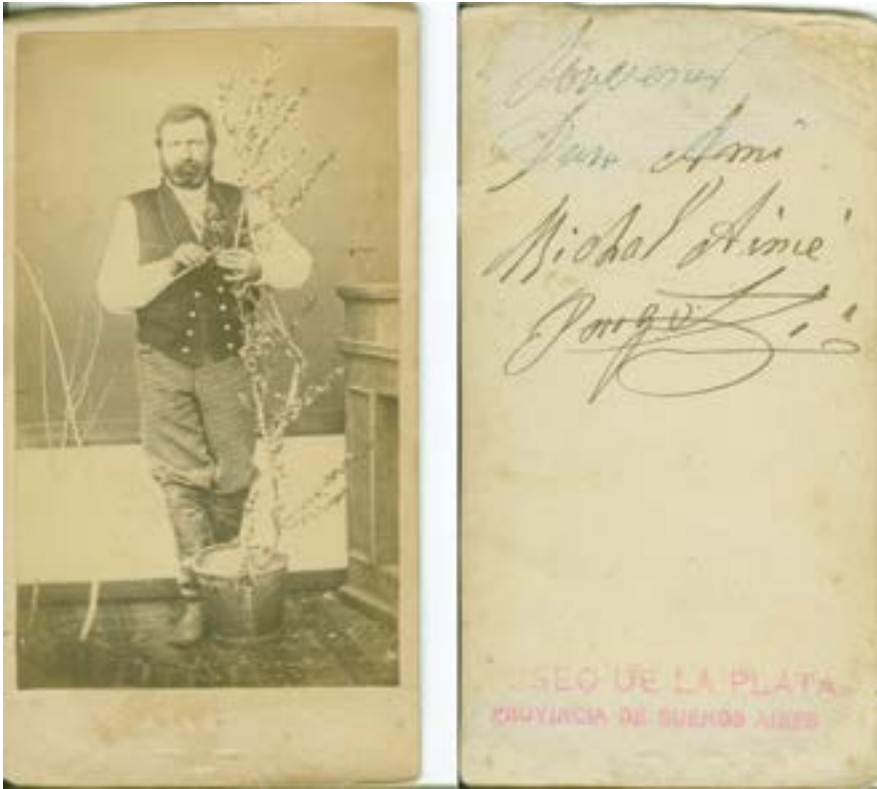 Souvenir
Dun Ami
Michel Aimé
MUSEO DE LA PLATA
PROVINCIA DE BUENOS AIRES